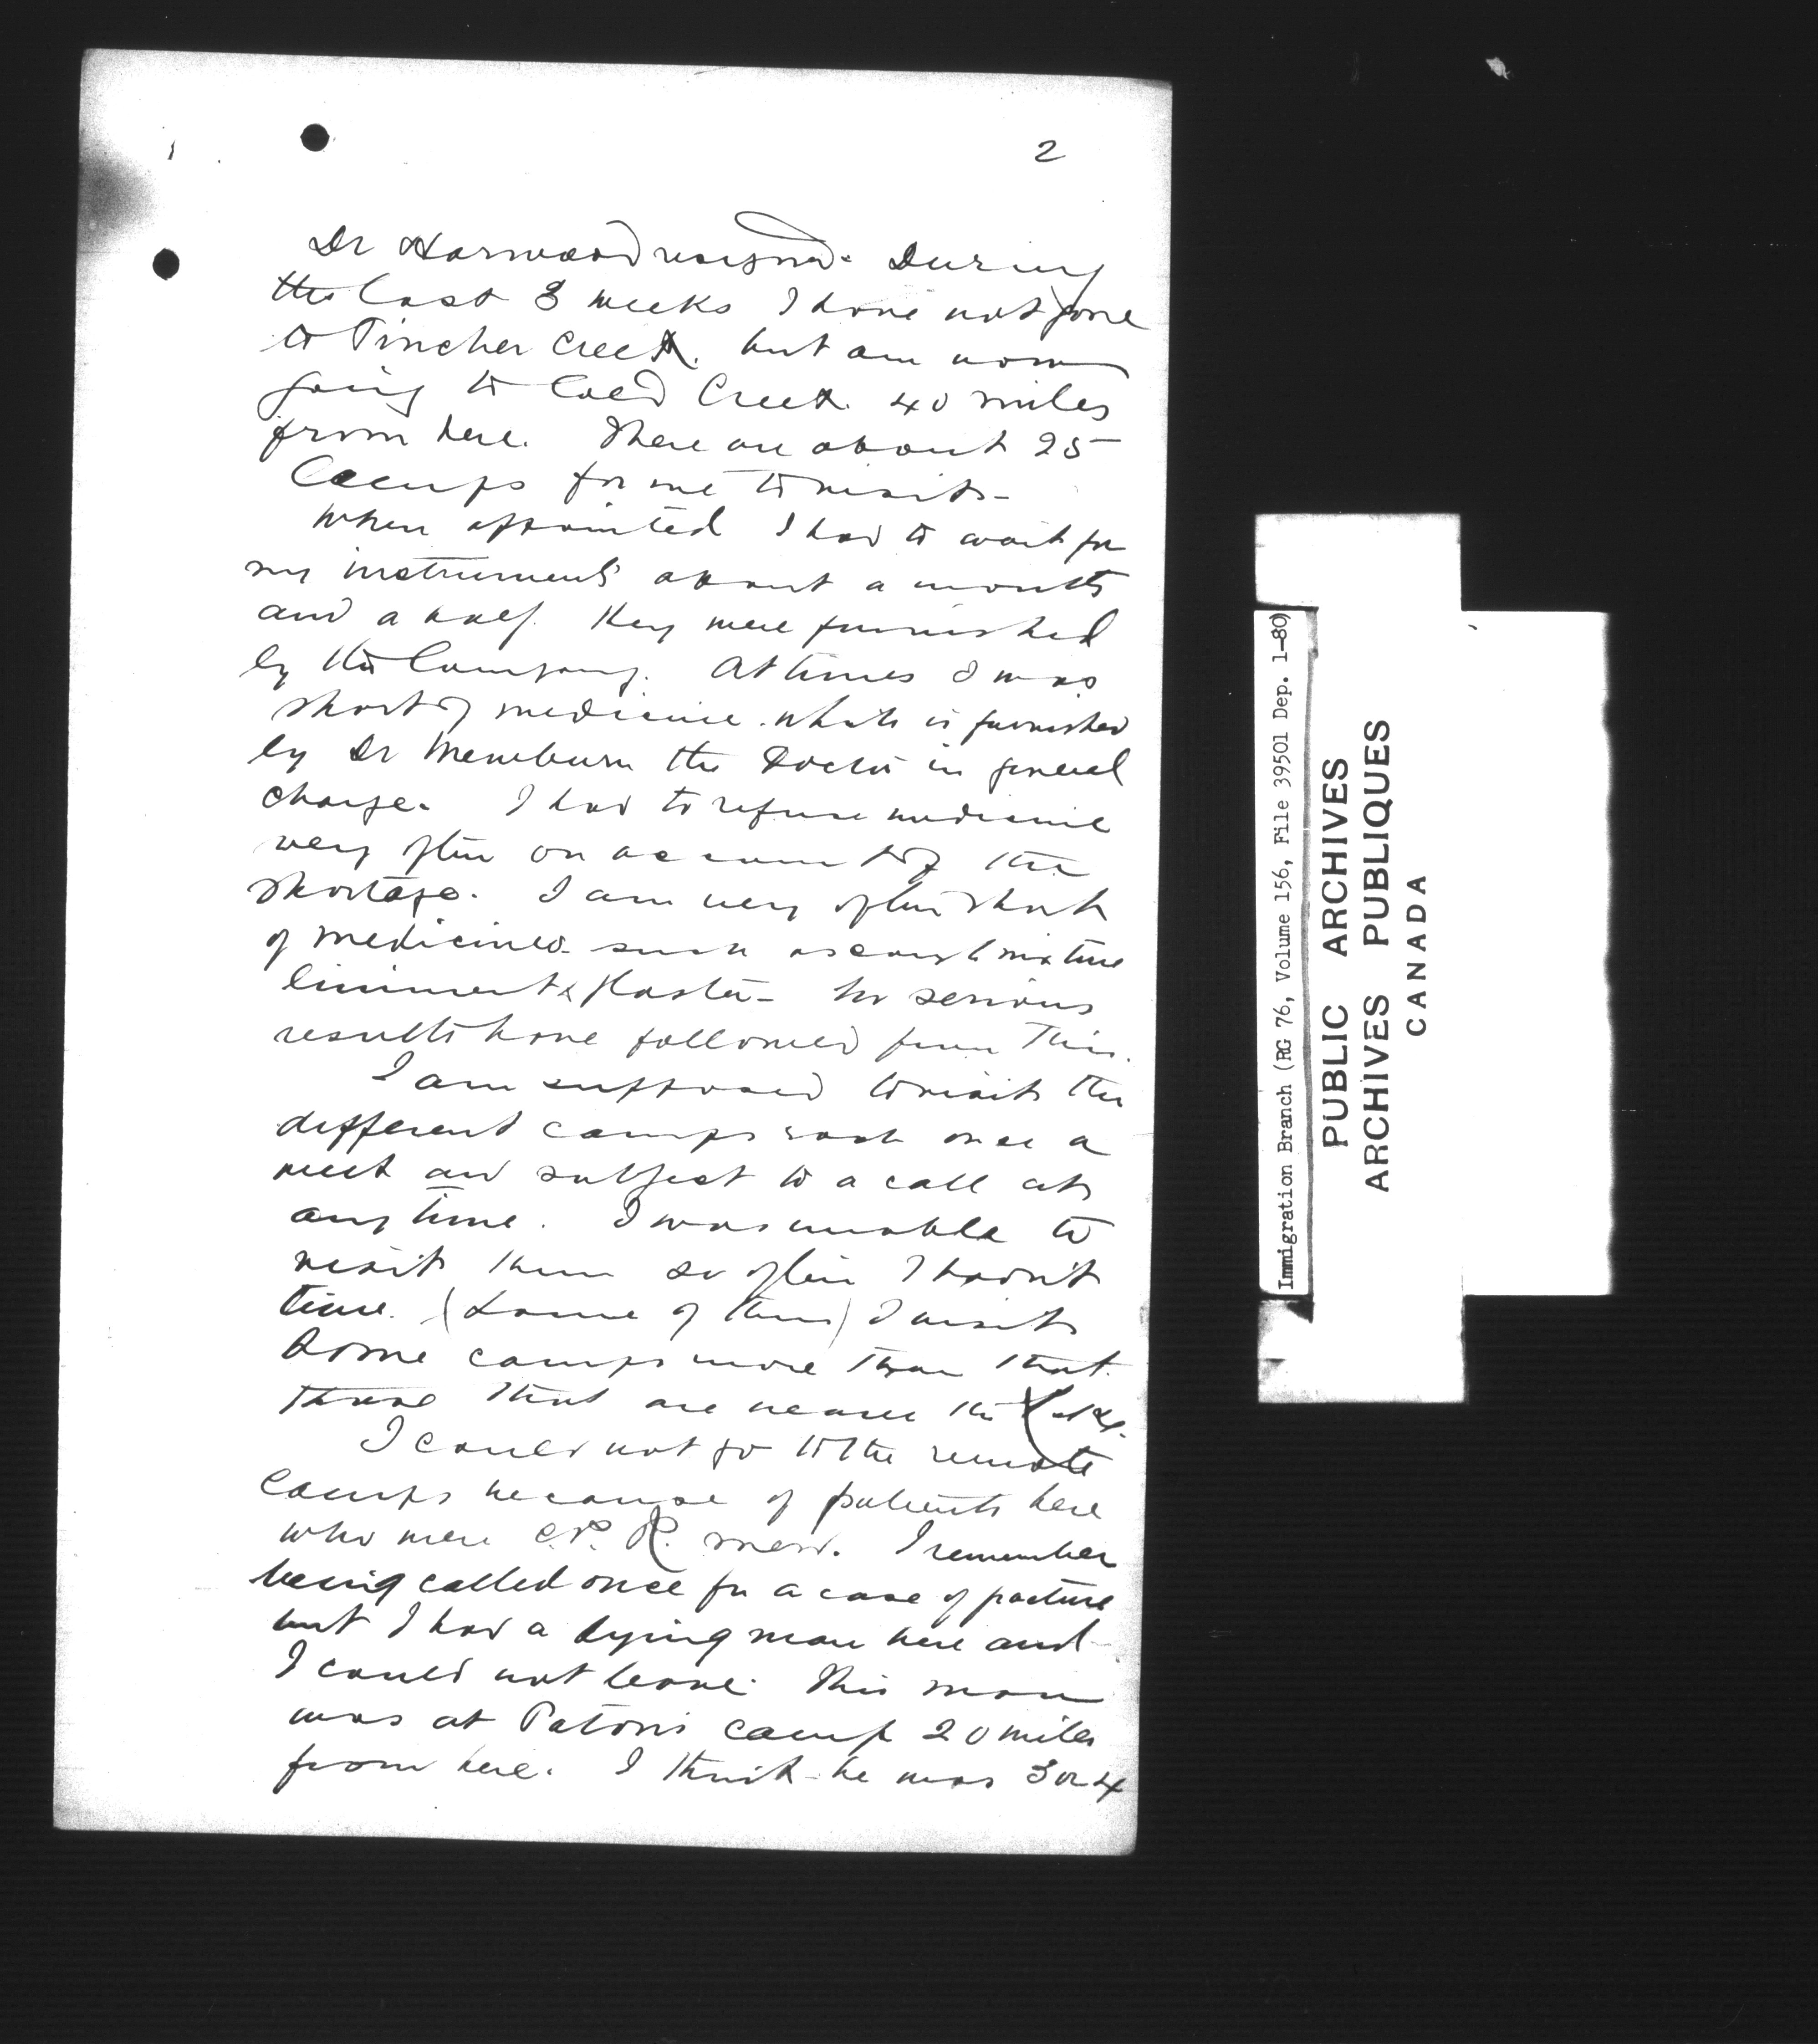 2
Dr Harwood resigned. During
the last 3 weeks I have not gone
to Pincher Creek. but am now
going to Coal Creek. 40 miles
from here. There are about 25
Camps for me to visit -
When appointed I had to wait for
my instruments about a month
and a half. They were furnished
by the Company. At times I was
short of medicine. which is furnished
by Dr Mewburn the Doctor in general
charge. I had to refuse medicine
very often on account of the
shortage. I am very often short
of medicines - such as cough mixture
liniment & plaster - No serious
results have followed from this.
I am supposed to visit the
different camps each once a
week and subject to a call at
any time. I was unable to
visit them so often I hadn't
time. (Some of them) I visit
some camps more than that.
Those that are nearer the
I could not go to the remote
camps because of patients here
who were C.P.R. men. I remember
being called once for a case of fracture
but I had a dying man here and
I could not leave. This man
was at Paton's camp 20 miles
from here. I think he was 3 or 4
Immigration Branch (RG 76, Volume 156, File 39501 Dep. 1-80)
PUBLIC ARCHIVES
ARCHIVES PUBLIQUES
CANADA